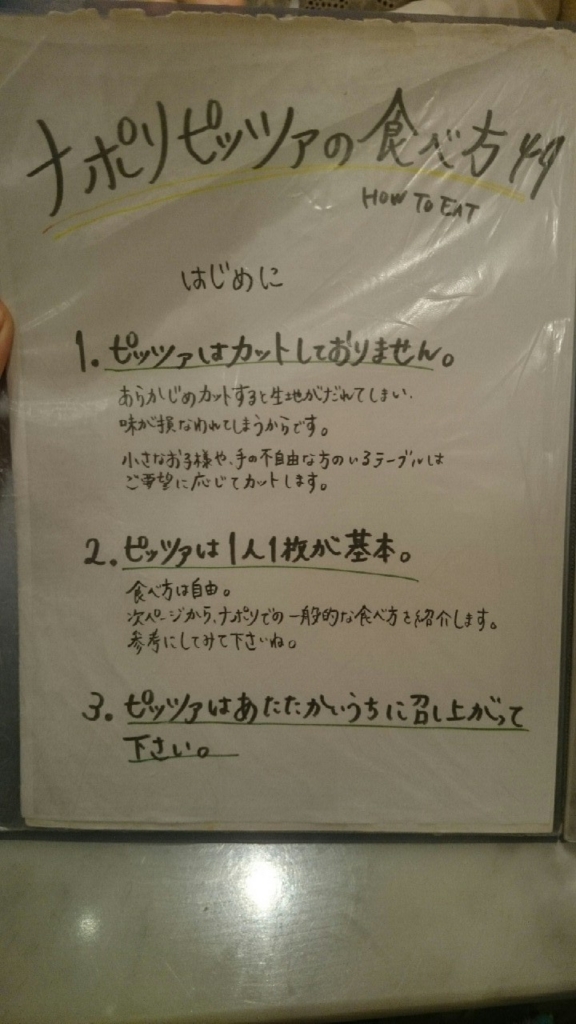 ナポリピッツァの食べ方
HOW TO EAT
はじめに
1. ピッツァはカットしておりません。
あらかじめカットすると生地がだれてしまい、
味が損なわれてしまうからです。
小さなお子様や、手の不自由な方のいるテーブルは
ご要望に応じてカットします。
2. ピッツァは1人1枚が基本。
食べ方は自由。
次ページから、ナポリでの一般的な食べ方を紹介します。
参考にしてみて下さいね。
3. ピッツァはあたたかいうちに召し上がって
下さい。